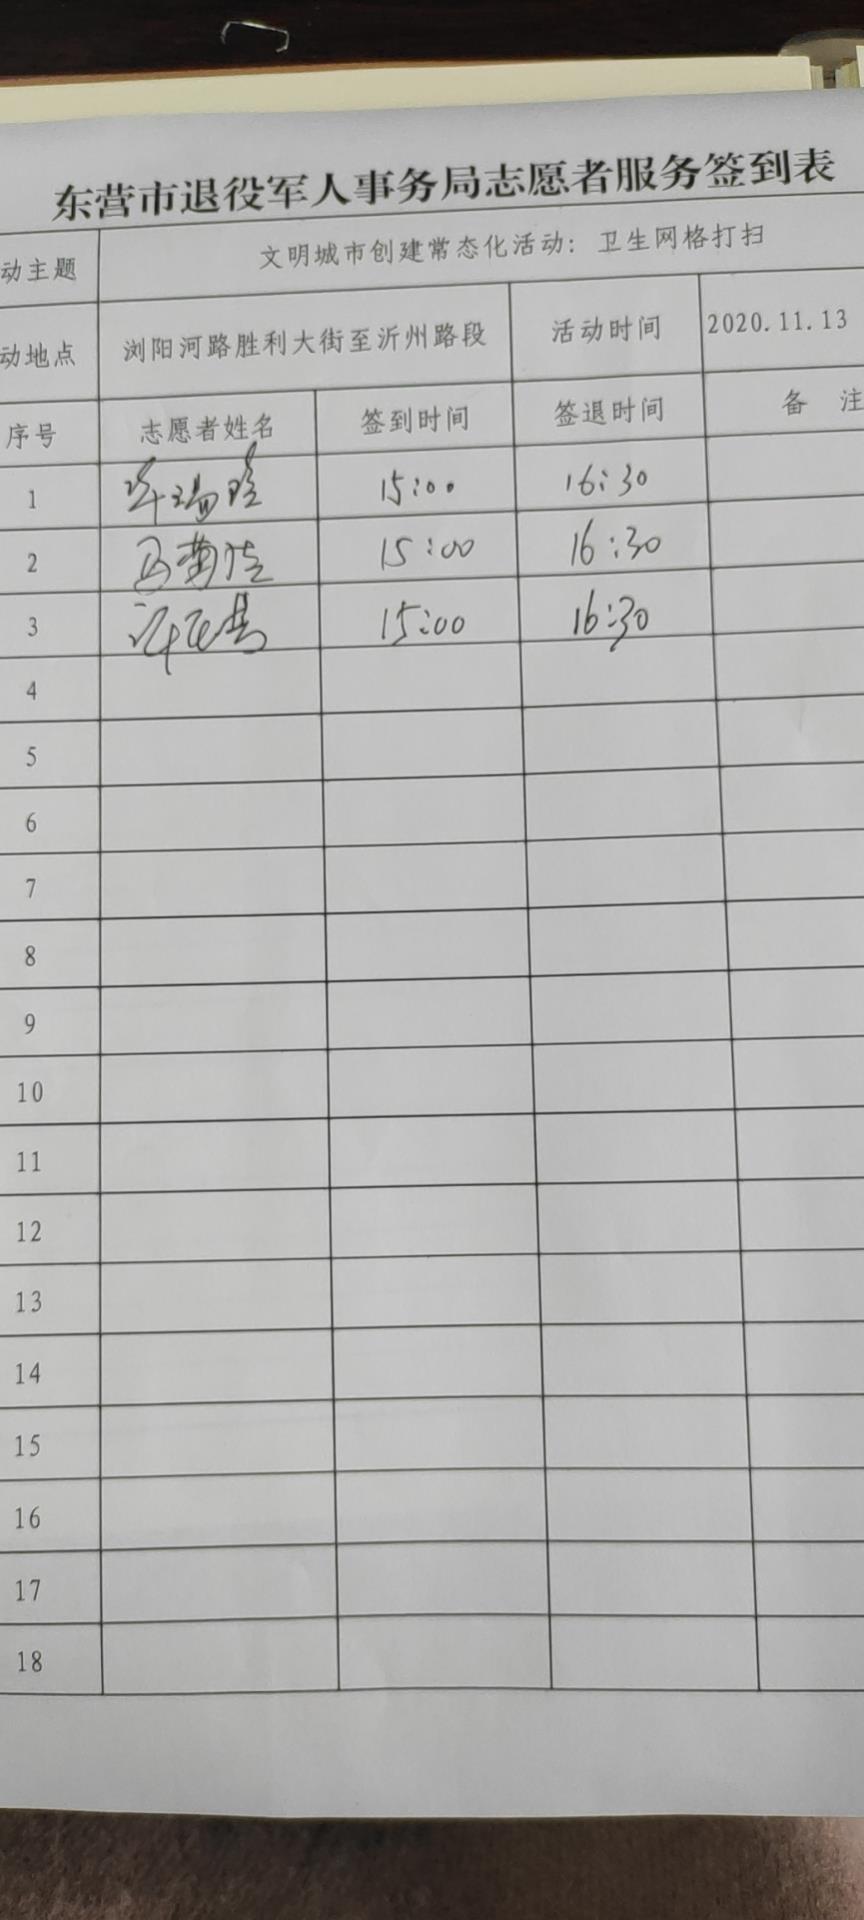 东营市退役军人事务局志愿者服务签到表
动主题 文明城市创建常态化活动：卫生网格打扫
动地点 浏阳河路胜利大街至沂州路段 活动时间 2020.11.13
序号 志愿者姓名 签到时间 签退时间 备 注
1 15:00 16:30
2 15:00 16:30
3 15:00 16:30
4
5
6
7
8
9
10
11
12
13
14
15
16
17
18